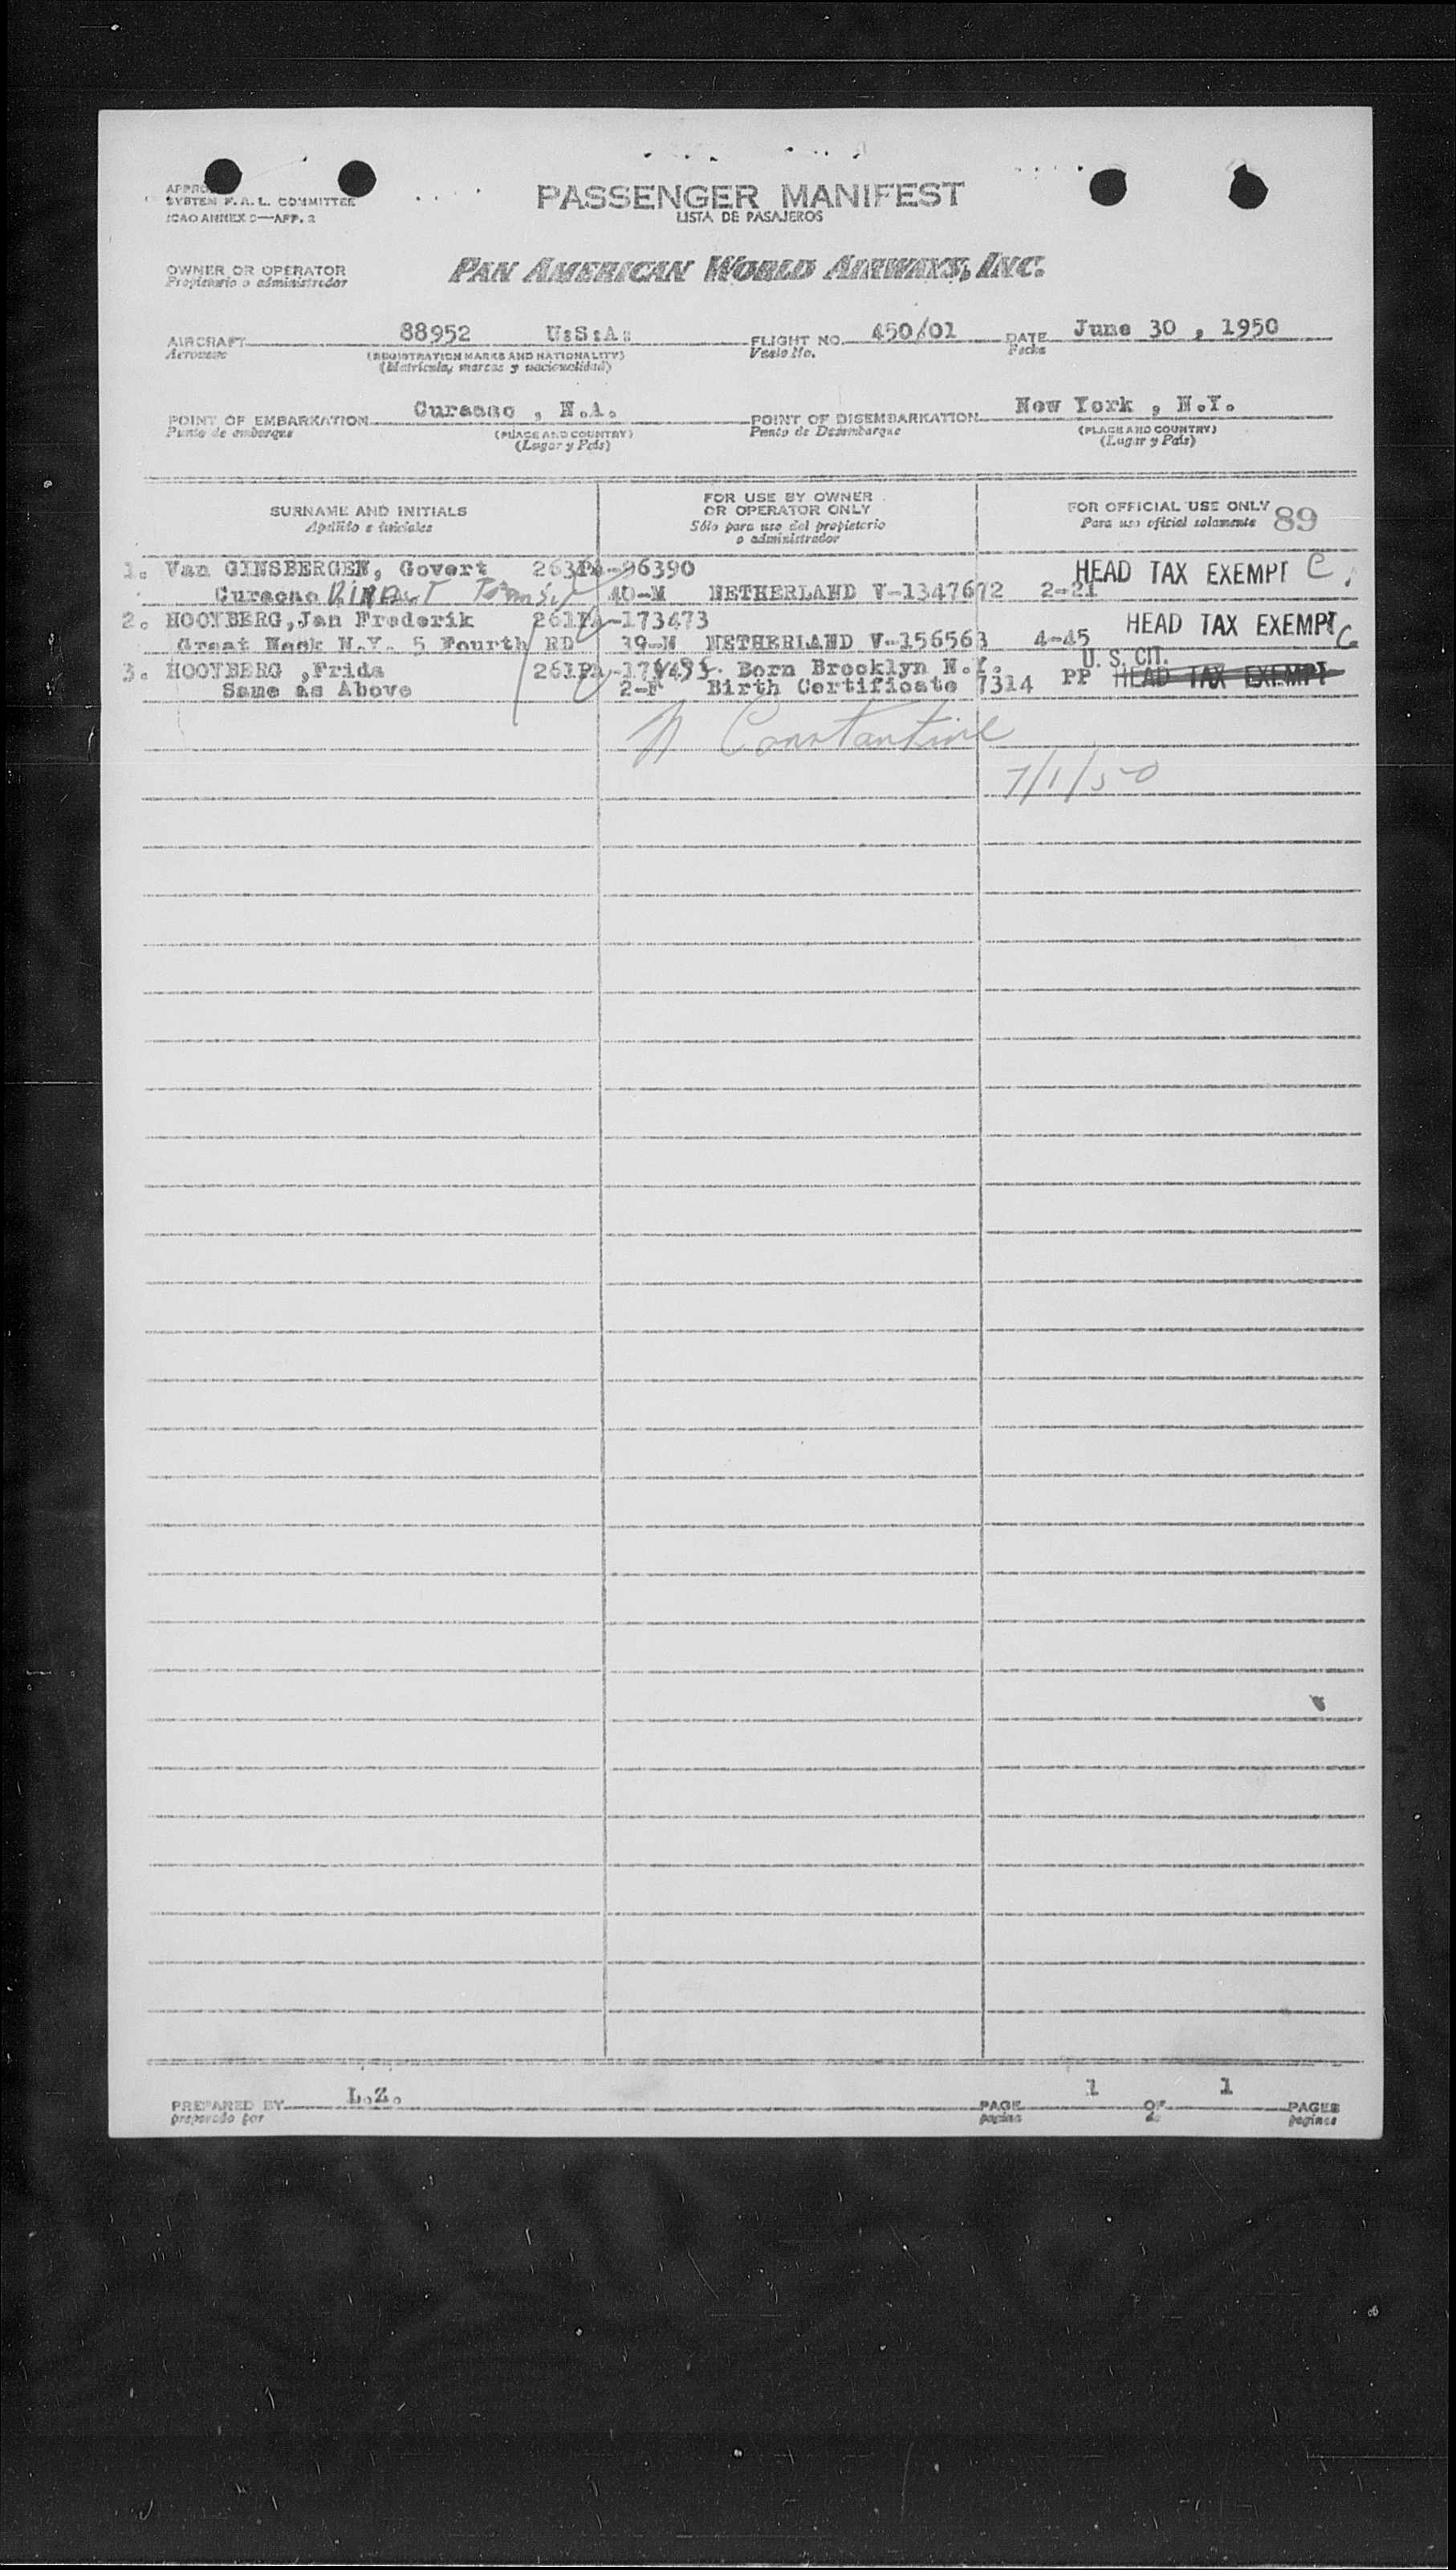 SYSTEM F.A.L. COMMITTEE
ICAO ANNEX 9—APP. 2
PASSENGER MANIFEST
LISTA DE PASAJEROS
OWNER OR OPERATOR
Propietario o administrador
PAN AMERICAN WORLD AIRWAYS, INC.
AIRCRAFT 88952 U:S:A: FLIGHT NO. 450/01 DATE June 30 , 1950
Aeronave (REGISTRATION MARKS AND NATIONALITY) Vuelo No. Fecha
(Matrícula, marcas y nacionalidad)
POINT OF EMBARKATION Curacao , N.A. POINT OF DISEMBARKATION New York , N.Y.
Punto de embarque (PLACE AND COUNTRY) Punto de Desembarque (PLACE AND COUNTRY)
(Lugar y País) (Lugar y País)
SURNAME AND INITIALS
Apellido e iniciales
FOR USE BY OWNER
OR OPERATOR ONLY
Sólo para uso del propietario
o administrador
FOR OFFICIAL USE ONLY 89
Para uso oficial solamente
1. Van GINSBERGEN, Govert 263PA-96390 HEAD TAX EXEMPT C
Curacao DIRECT Transit 40-M NETHERLAND V-1347672 2-21
2. HOOYBERG,Jan Frederik 261PA-173473 HEAD TAX EXEMPT C
Great Neck N.Y. 5 Fourth RD 39-M NETHERLAND V-156563 4-45
3. HOOYBERG ,Frida 261PA- Born Brooklyn N.Y. U. S. CIT.
Same as Above 2-F Birth Certificate 7314 PP HEAD TAX EXEMPT
N Constantine
7/1/50
PREPARED BY L.Z. PAGE 1 OF 1 PAGES
preparado por pagina de paginas